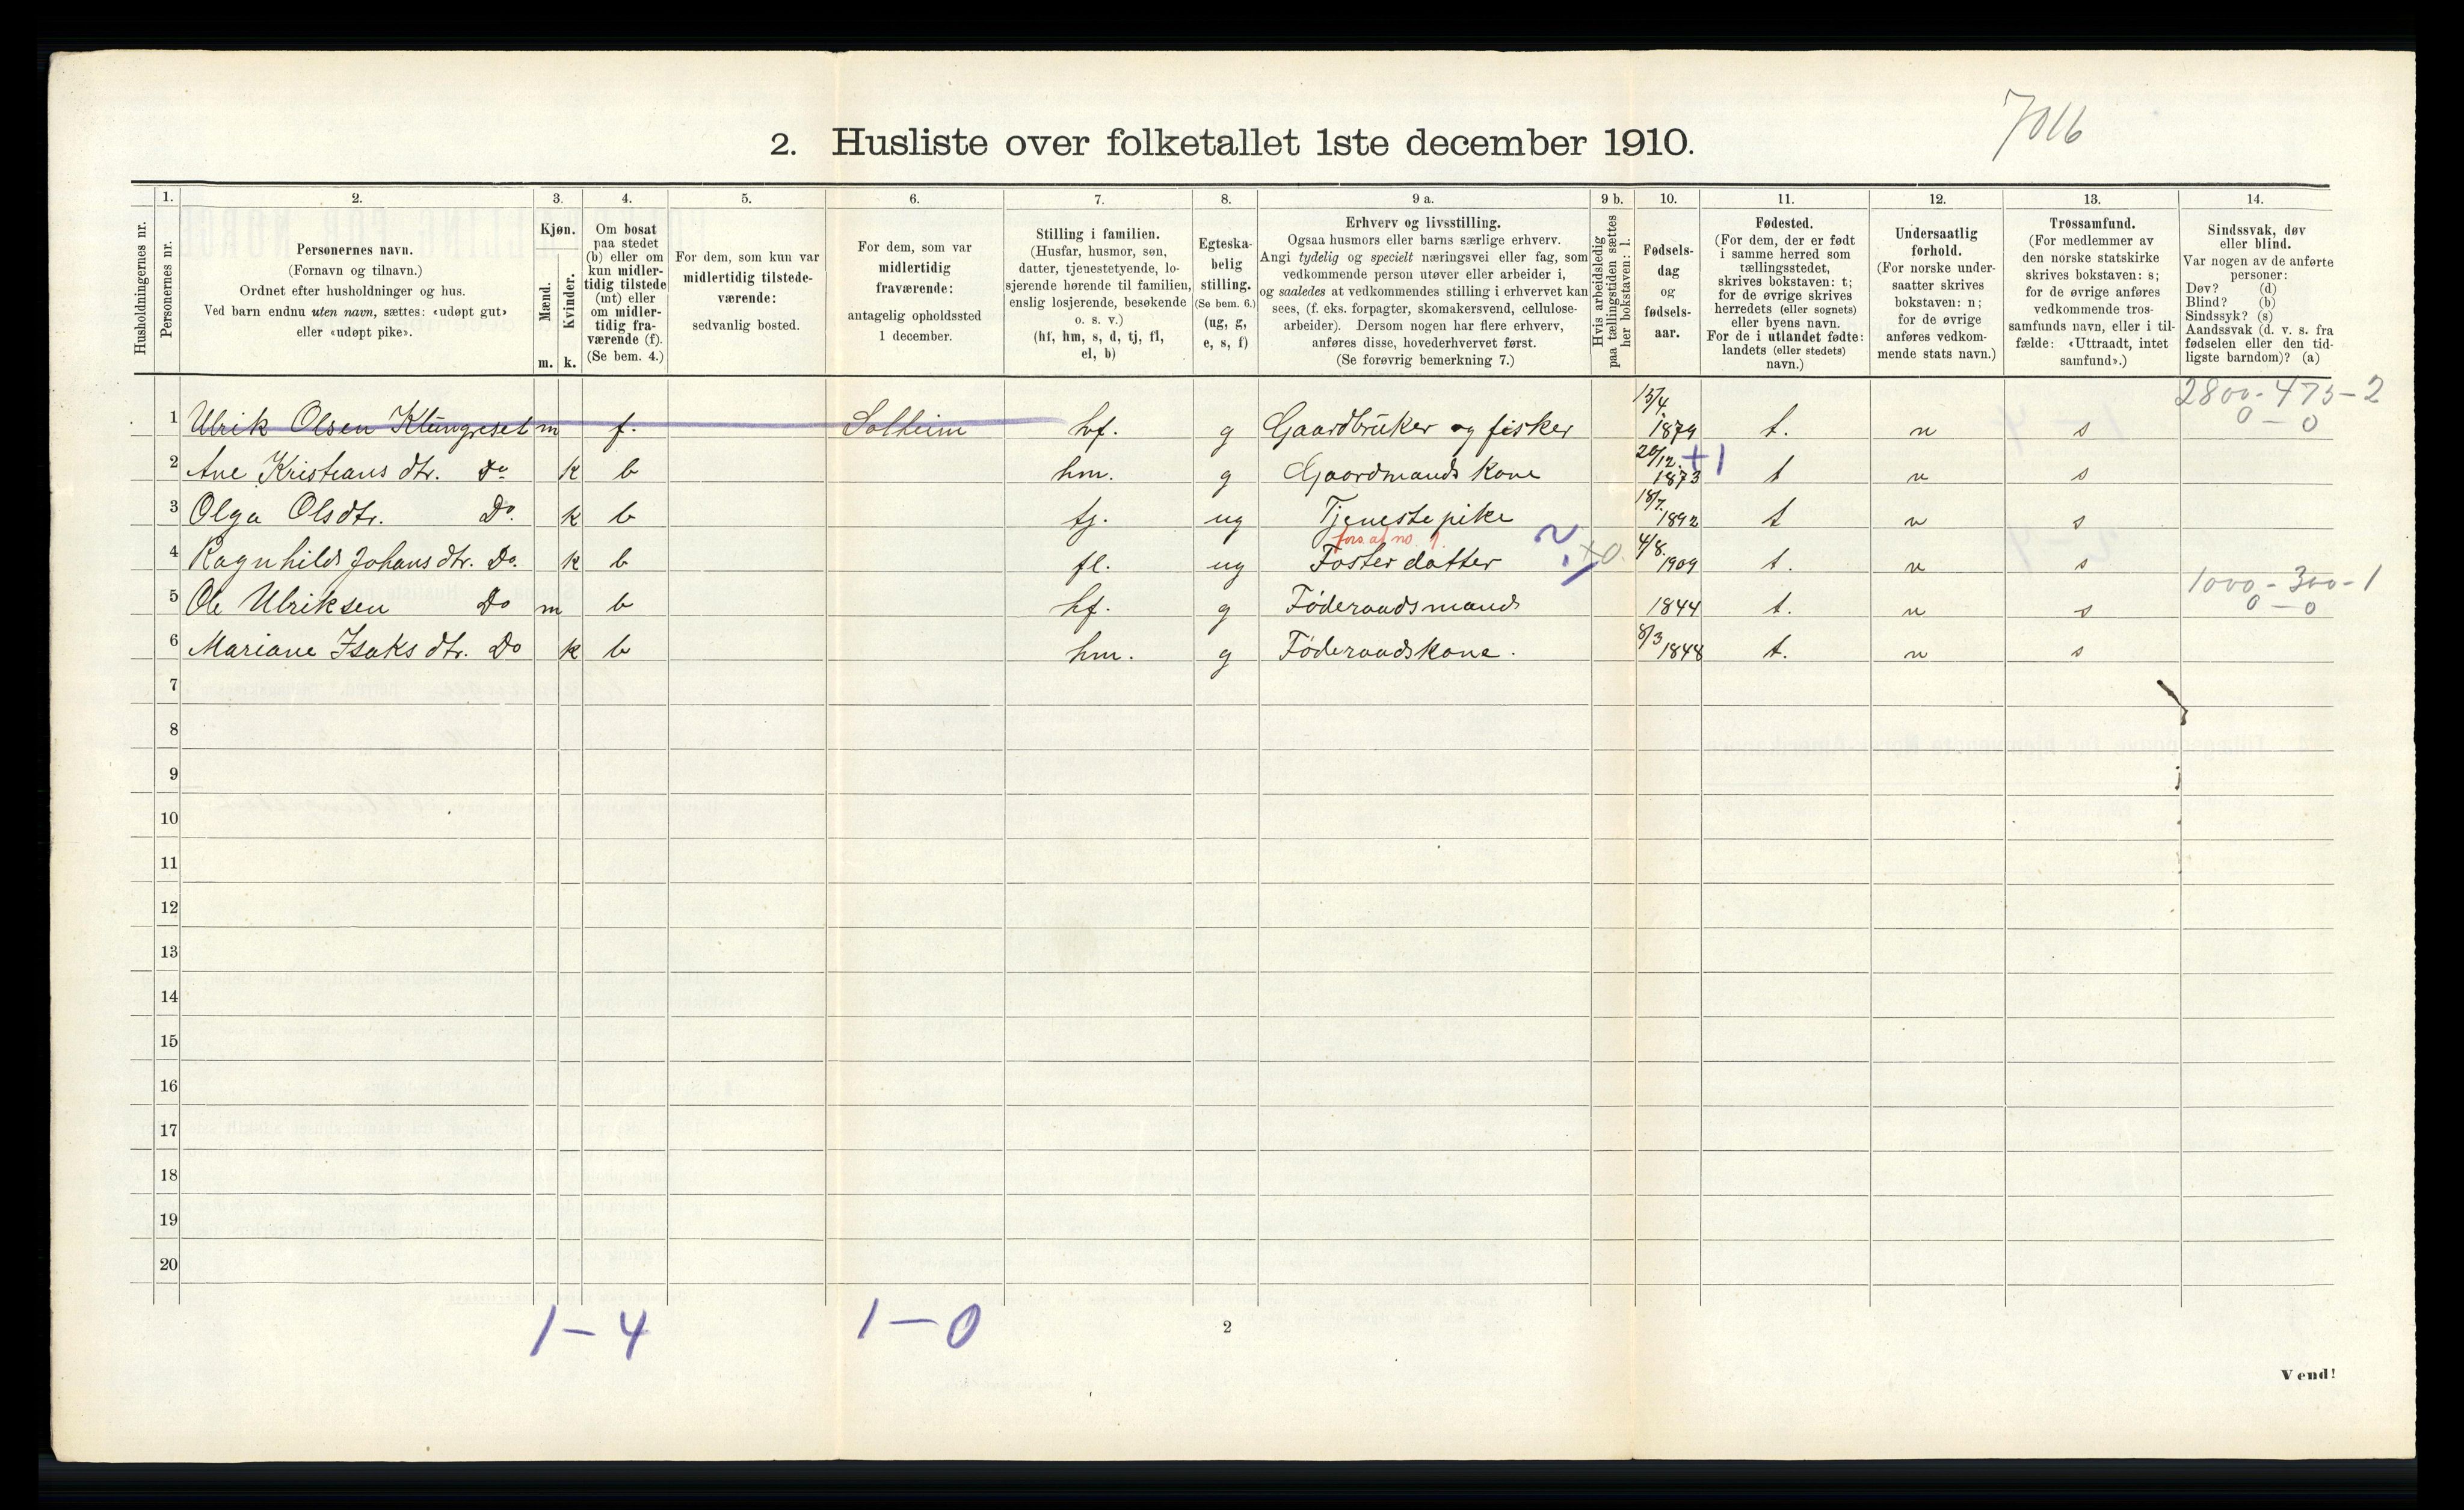 7016
2. Husliste over folketallet 1ste december 1910.
Husholdningernes nr.
1.
Personernes nr.
2.
Personernes navn.
(Fornavn og tilnavn.)
Ordnet efter husholdninger og hus.
Ved barn endnu uten navn, sættes: «udøpt gut»
eller «udøpt pike».
3.
Kjøn.
Mænd.
Kvinder.
m. k.
4.
Om bosat
paa stedet
(b) eller om
kun midler-
tidig tilstede
(mt) eller
om midler-
tidig fra-
værende (f).
(Se bem. 4.)
5.
For dem, som kun var
midlertidig tilstede-
værende:
sedvanlig bosted.
6.
For dem, som var
midlertidig
fraværende:
antagelig opholdssted
1 december.
7.
Stilling i familien.
(Husfar, husmor, søn,
datter, tjenestetyende, lo-
sjerende hørende til familien,
enslig losjerende, besøkende
o. s. v.)
(hf, hm, s, d, tj, fl,
el, b)
8.
Egteska-
belig
stilling.
(Se bem. 6.)
(ug, g,
e, s, f)
9 a.
Erhverv og livsstilling.
Ogsaa husmors eller barns særlige erhverv.
Angi tydelig og specielt næringsvei eller fag, som
vedkommende person utøver eller arbeider i,
og saaledes at vedkommendes stilling i erhvervet kan
sees, (f. eks. forpagter, skomakersvend, cellulose-
arbeider). Dersom nogen har flere erhverv,
anføres disse, hovederhvervet først.
(Se forøvrig bemerkning 7.)
9 b.
Hvis arbeidsledig
paa tællingstiden sættes
her bokstaven: l.
10.
Fødsels-
dag
og
fødsels-
aar.
11.
Fødested.
(For dem, der er født
i samme herred som
tællingsstedet,
skrives bokstaven: t;
for de øvrige skrives
herredets (eller sognets)
eller byens navn.
For de i utlandet fødte:
landets (eller stedets)
navn.)
12.
Undersaatlig
forhold.
(For norske under-
saatter skrives
bokstaven: n;
for de øvrige
anføres vedkom-
mende stats navn.)
13.
Trossamfund.
(For medlemmer av
den norske statskirke
skrives bokstaven: s;
for de øvrige anføres
vedkommende tros-
samfunds navn, eller i til-
fælde: «Uttraadt, intet
samfund».)
14.
Sindssvak, døv
eller blind.
Var nogen av de anførte
personer:
Døv? (d)
Blind? (b)
Sindssyk? (s)
Aandssvak (d. v. s. fra
fødselen eller den tid-
ligste barndom)? (a)
2800-475-2
0-0
1 Ulrik Olsen Klungreset m f. Solheim hf. g Gaardbruker og fisker 13/4 1879 t. n s
2 Ane Kristians dtr. Do k b hm. g Gaardmands kone 20/12 1873 +1 t n s
3 Olga Olsdtr. Do. k b tj. ug Tjenestepike 18/7 1892 t n s
fors. af no. 1.
4 Ragnhild Johans dtr. Do. k b fl. ug Fosterdatter +0. 4/8 1909 t. n s
1000-300-1
0-0
5 Ole Ulriksen Do m b hf. g Føderaadsmand 1844 t. n s
6 Mariane Isaks dtr. Do k b hm. g Føderaadskone. 8/3 1848 t. n s
7
8
9
10
11
12
13
14
15
16
17
18
19
20
1-4 1-0
2
Vend!